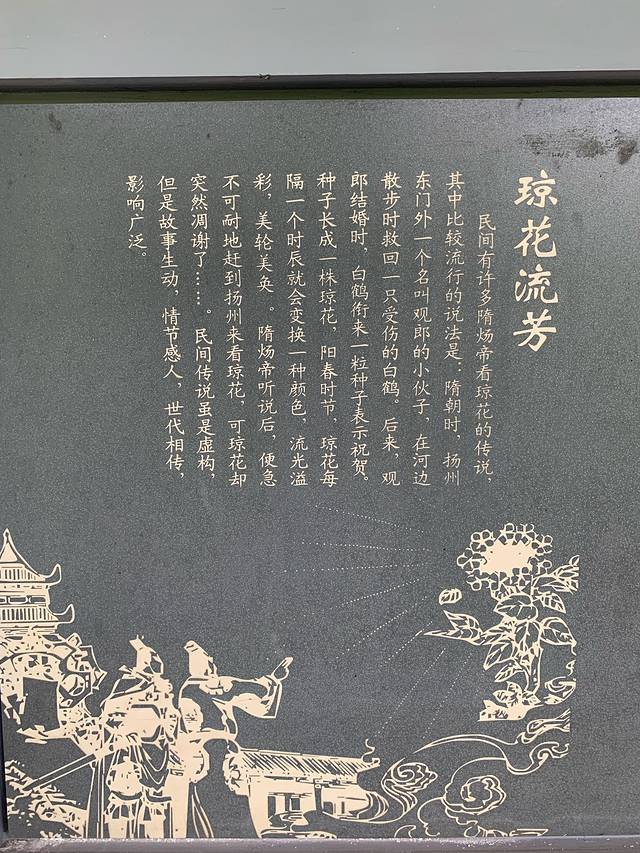 琼花流芳
民间有许多隋炀帝看琼花的传说，
其中比较流行的说法是：隋朝时，扬州
东门外一个名叫观郎的小伙子，在河边
散步时救回一只受伤的白鹤。后来，观
郎结婚时，白鹤衔来一粒种子表示祝贺。
种子长成一株琼花，阳春时节，琼花每
隔一个时辰就会变换一种颜色，流光溢
彩，美轮美奂 。隋炀帝听说后，便急
不可耐地赶到扬州来看琼花，可琼花却
突然凋谢了……。民间传说虽是虚构，
但是故事生动，情节感人，世代相传，
影响广泛。